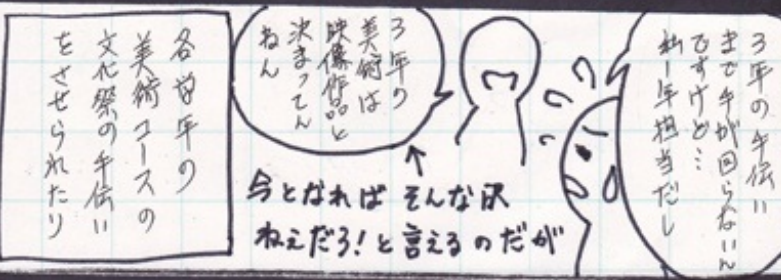 3年の手伝い
まで手が回らないん
ですけど…
私1年担当だし
3年の
美術は
映像作品と
決まってん
ねん
今となれば そんな訳
ねぇだろ!と言えるのだが
各学年の
美術コースの
文化祭の手伝い
をさせられたり